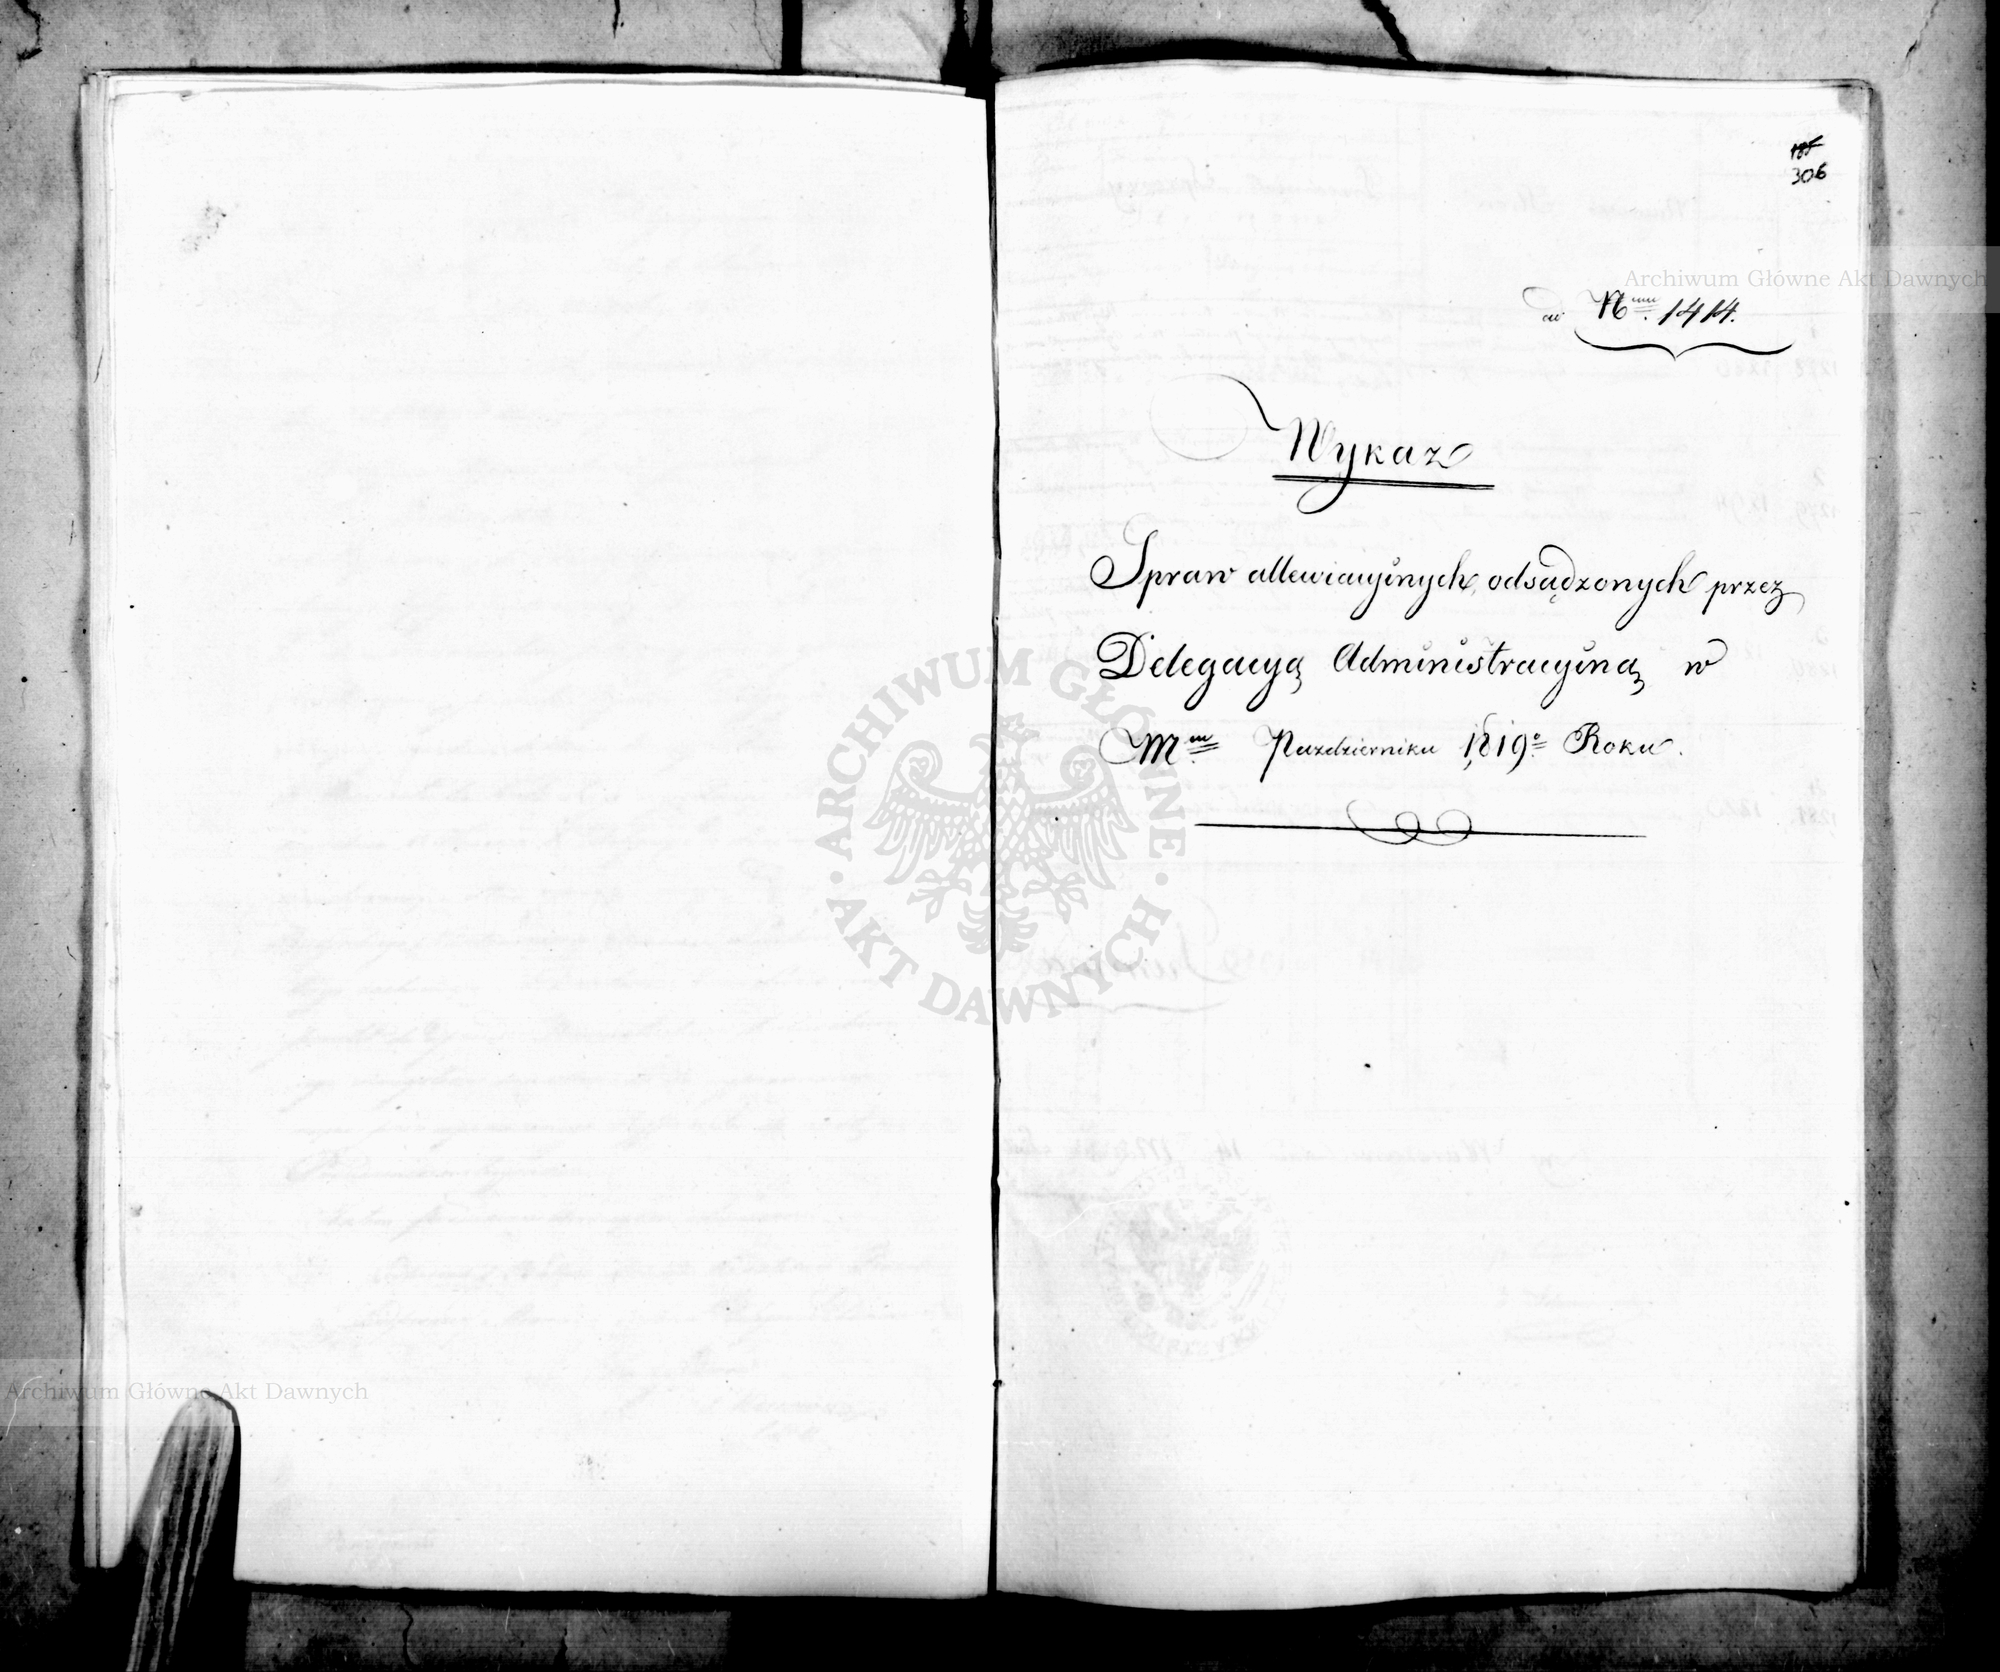 306
Archiwum Główne Akt Dawnych
ad Nrum. 1414.
Wykaz
Spraw allewiacyinych odsądzonych przez
Delegacyą Administracyiną w
Mcu Pazdzierniku 1819o Roku.
ARCHIWUM GŁÓWNE
AKT DAWNYCH
Archiwum Główne Akt Dawnych